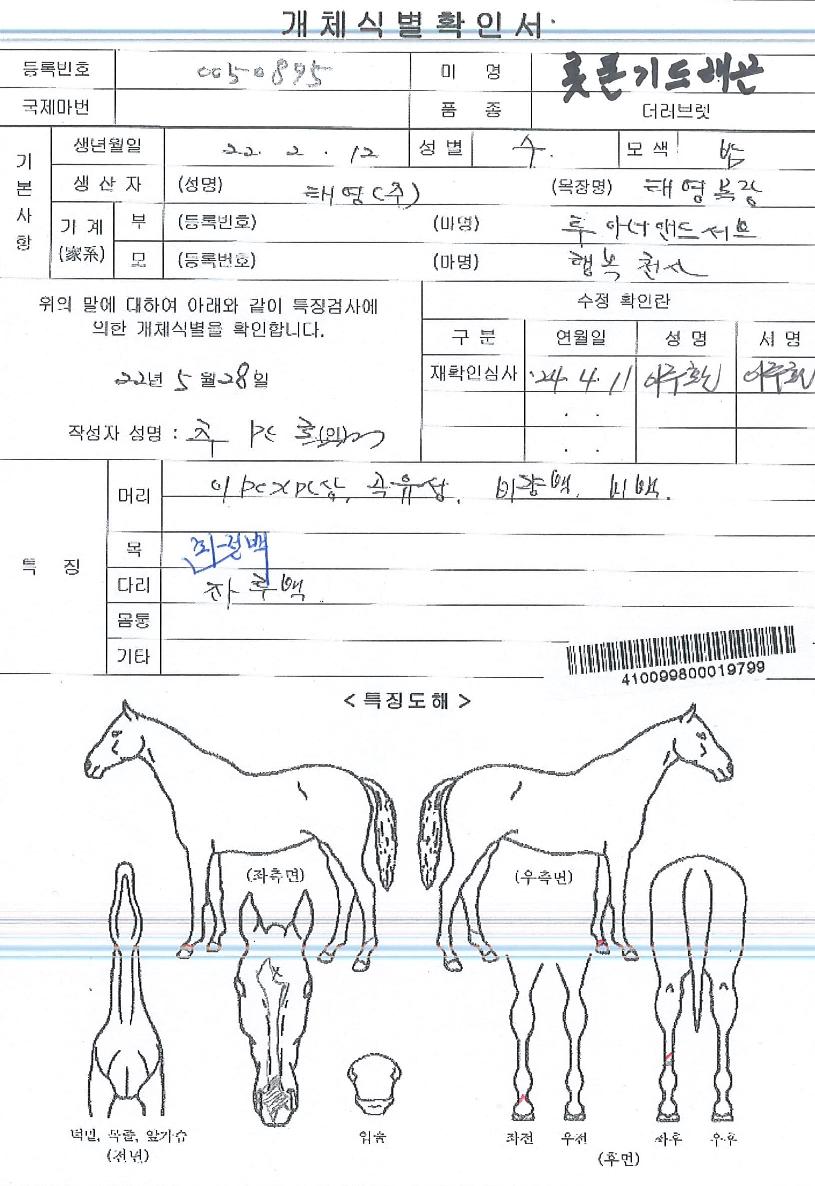 개체식별확인서
등록번호 0050895 미 명 롯큰기드래곤
국제마번 품 종 더러브렛
기본사항
생년월일 22. 2. 12 성별 수. 모색 밤
생산자 (성명) 태영(주) (목장명) 태영목장
기계(家系) 부 (등록번호) (마명) 투아너앤드서브
모 (등록번호) (마명) 행복천사
위의 말에 대하여 아래와 같이 특징검사에
의한 개체식별을 확인합니다.
수정 확인란
구분 연월일 성명 서명
22년 5월 28일
재확인심사 '24. 4. 11
. .
작성자 성명 : (인)
. .
특징
머리 곡유성. 비량백, 비백.
목
다리 좌후백
몸통
기타
410099800019799
<특징도해>
(좌측면) (우측면)
턱밑, 목줄, 앞가슴 입술 좌전 우전 좌후 우후
(전면) (후면)